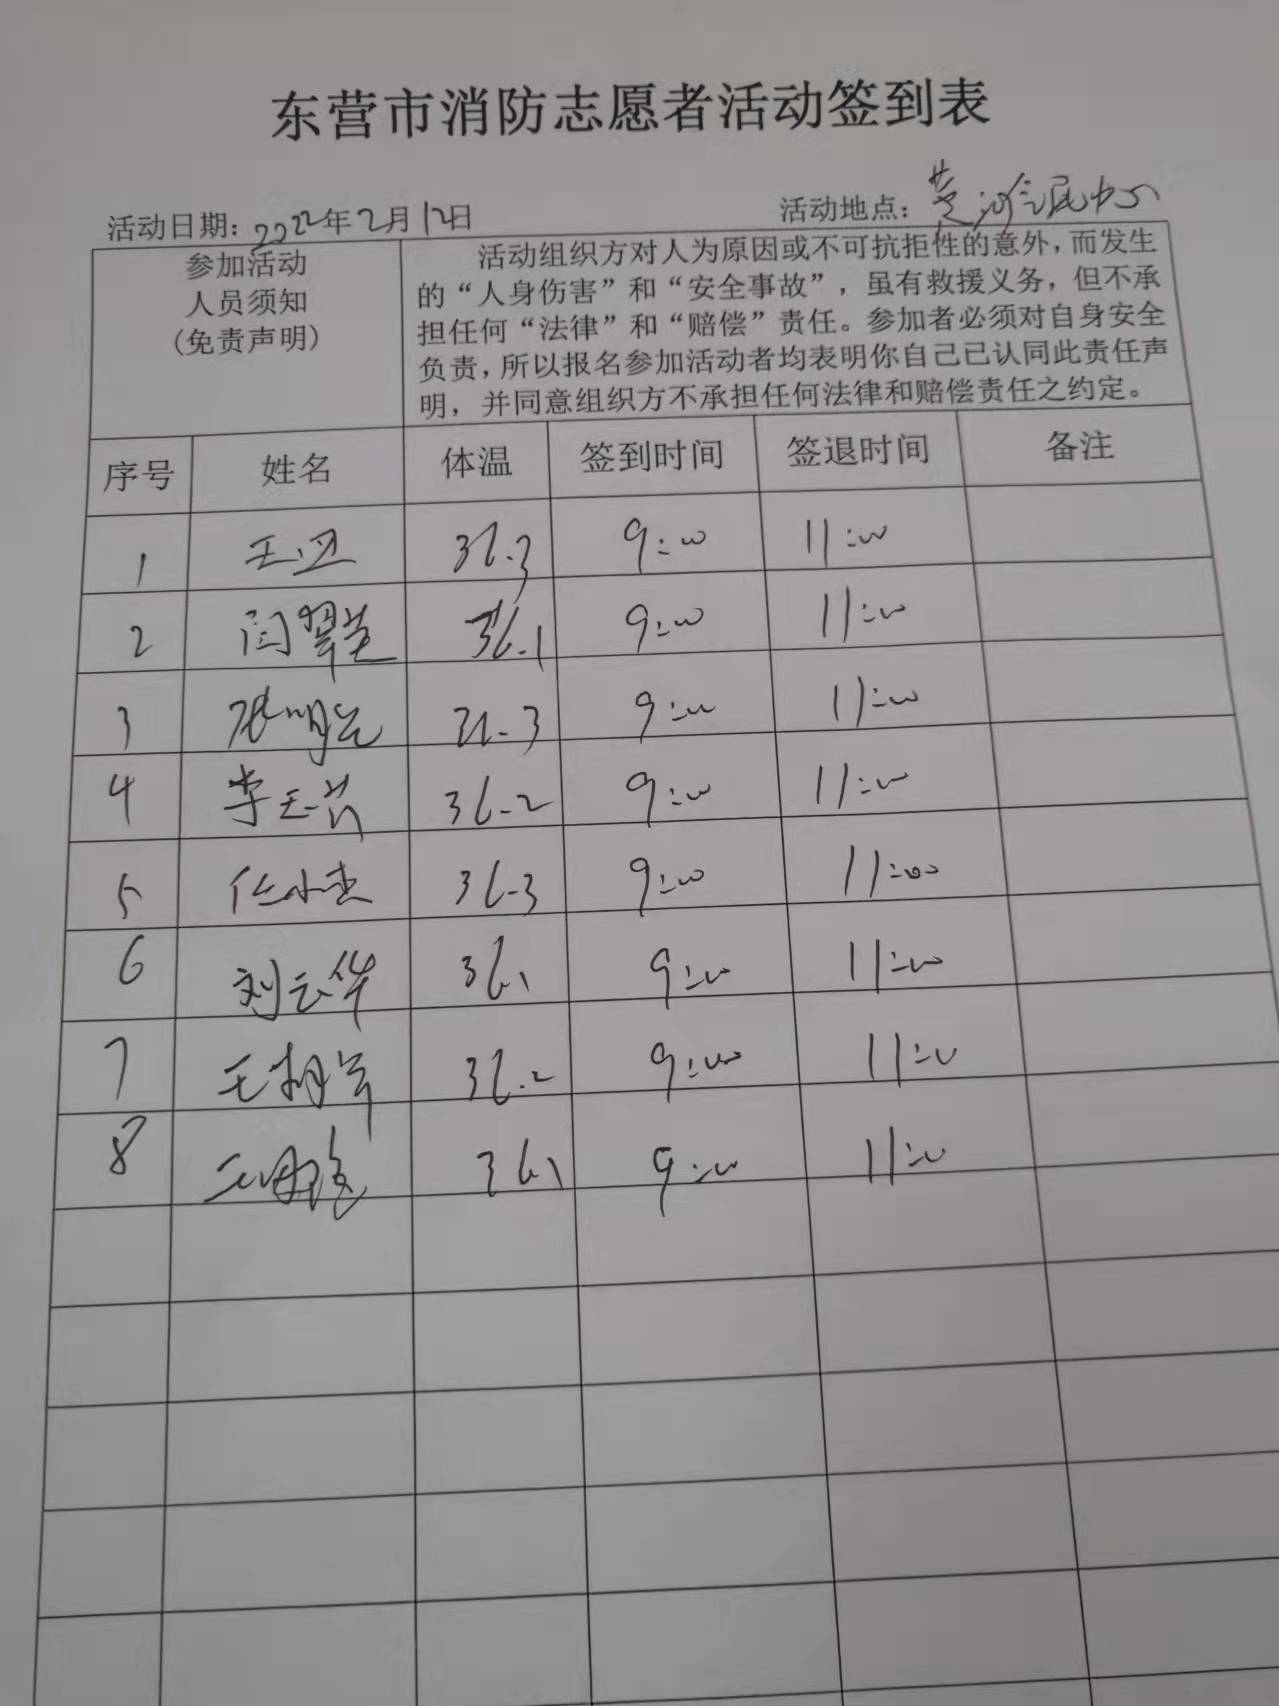 东营市消防志愿者活动签到表
活动日期：2022年2月12日 活动地点：
参加活动
人员须知
(免责声明)
活动组织方对人为原因或不可抗拒性的意外，而发生
的“人身伤害”和“安全事故”，虽有救援义务，但不承
担任何“法律”和“赔偿”责任。参加者必须对自身安全
负责，所以报名参加活动者均表明你自己已认同此责任声
明，并同意组织方不承担任何法律和赔偿责任之约定。
序号 姓名 体温 签到时间 签退时间 备注
1 王卫 36.3 9:00 11:00
2 闫翠兰 36.1 9:00 11:00
3 张明 36.3 9:00 11:00
4 李玉 36.2 9:00 11:00
5 任小杰 36.3 9:00 11:00
6 刘云华 36.1 9:00 11:00
7 王 36.2 9:00 11:00
8 王 36.1 9:00 11:00